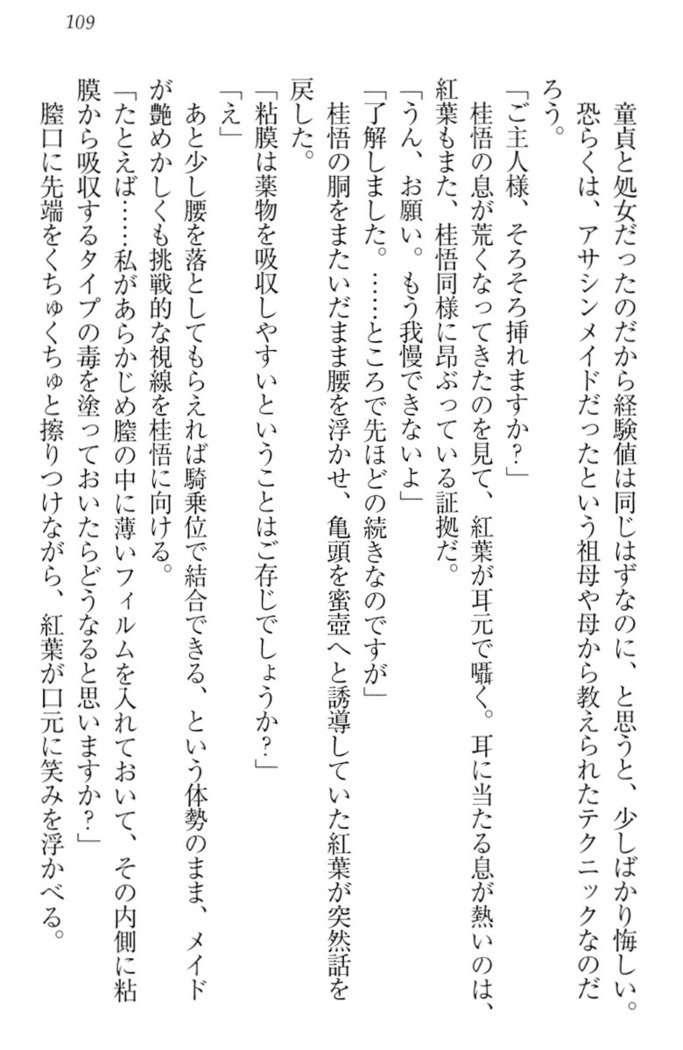 109
童貞と処女だったのだから経験値は同じはずなのに、と思うと、少しばかり悔しい。
恐らくは、アサシンメイドだったという祖母や母から教えられたテクニックなのだ
ろう。
「ご主人様、そろそろ挿れますか？」
桂悟の息が荒くなってきたのを見て、紅葉が耳元で囁く。耳に当たる息が熱いのは、
紅葉もまた、桂悟同様に昂ぶっている証拠だ。
「うん、お願い。もう我慢できないよ」
「了解しました。……ところで先ほどの続きなのですが」
桂悟の胴をまたいだまま腰を浮かせ、亀頭を蜜壺へと誘導していた紅葉が突然話を
戻した。
「粘膜は薬物を吸収しやすいということはご存じでしょうか？」
「え」
あと少し腰を落としてもらえれば騎乗位で結合できる、という体勢のまま、メイド
が艶めかしくも挑戦的な視線を桂悟に向ける。
「たとえば……私があらかじめ膣の中に薄いフィルムを入れておいて、その内側に粘
膜から吸収するタイプの毒を塗っておいたらどうなると思いますか？」
膣口に先端をくちゅくちゅと擦りつけながら、紅葉が口元に笑みを浮かべる。